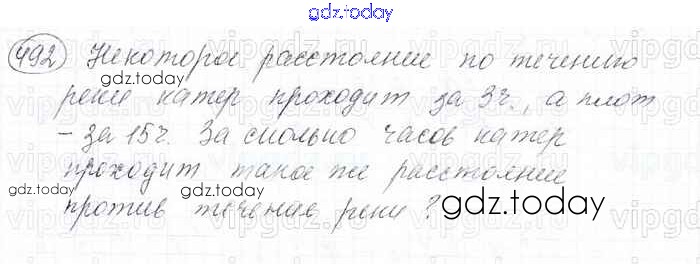 gdz.today
492 Некоторое расстояние по течению
gdz.today
реки катер проходит за 3ч., а плот
- за 15ч. За сколько часов катер
проходит такое же расстояние
gdz.today
gdz.today
против течения реки?
gdz.today